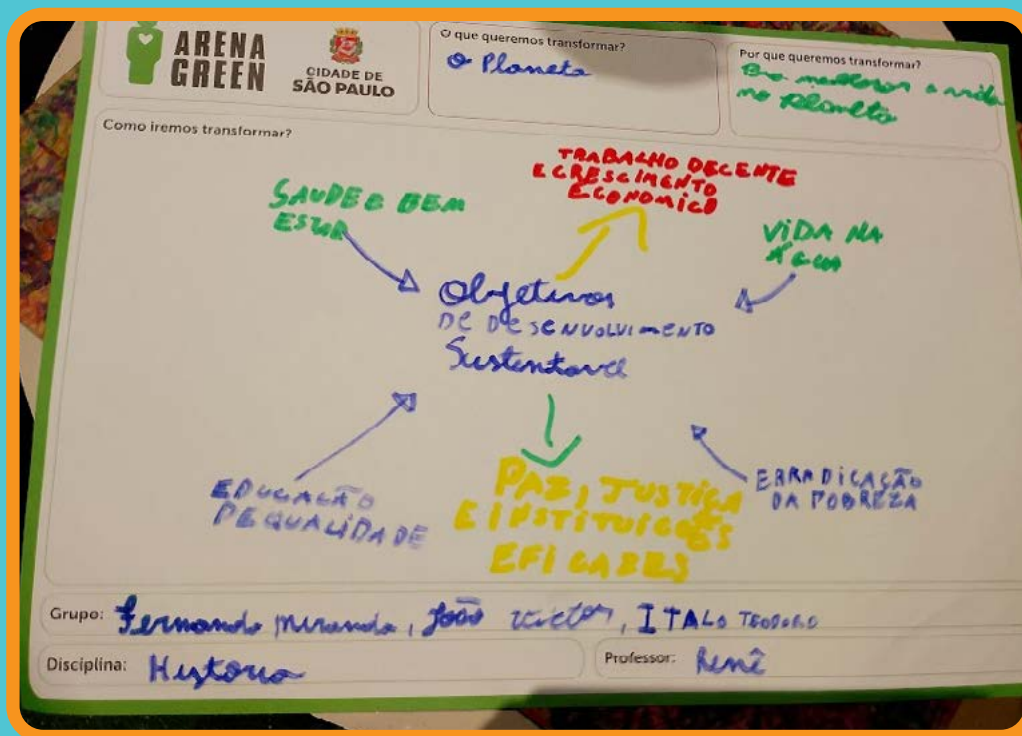 ARENA
GREEN
CIDADE DE
SÃO PAULO
O que queremos transformar?
O Planeta
Por que queremos transformar?
Pra melhorar a vida
no Planeta
Como iremos transformar?
SAUDE E BEM
ESTAR
TRABALHO DECENTE
E CRESCIMENTO
ECONOMICO
VIDA NA
ÁGUA
Objetivos
DE DESENVOLVIMENTO
Sustentavel
EDUCAÇÃO
DE QUALIDADE
PAZ, JUSTIÇA
E INSTITUIÇÕES
EFICAZES
ERRADICAÇÃO
DA POBREZA
Grupo: Fernando Miranda, João Victor, ITALO TEODORO
Disciplina: Historia
Professor: Renê